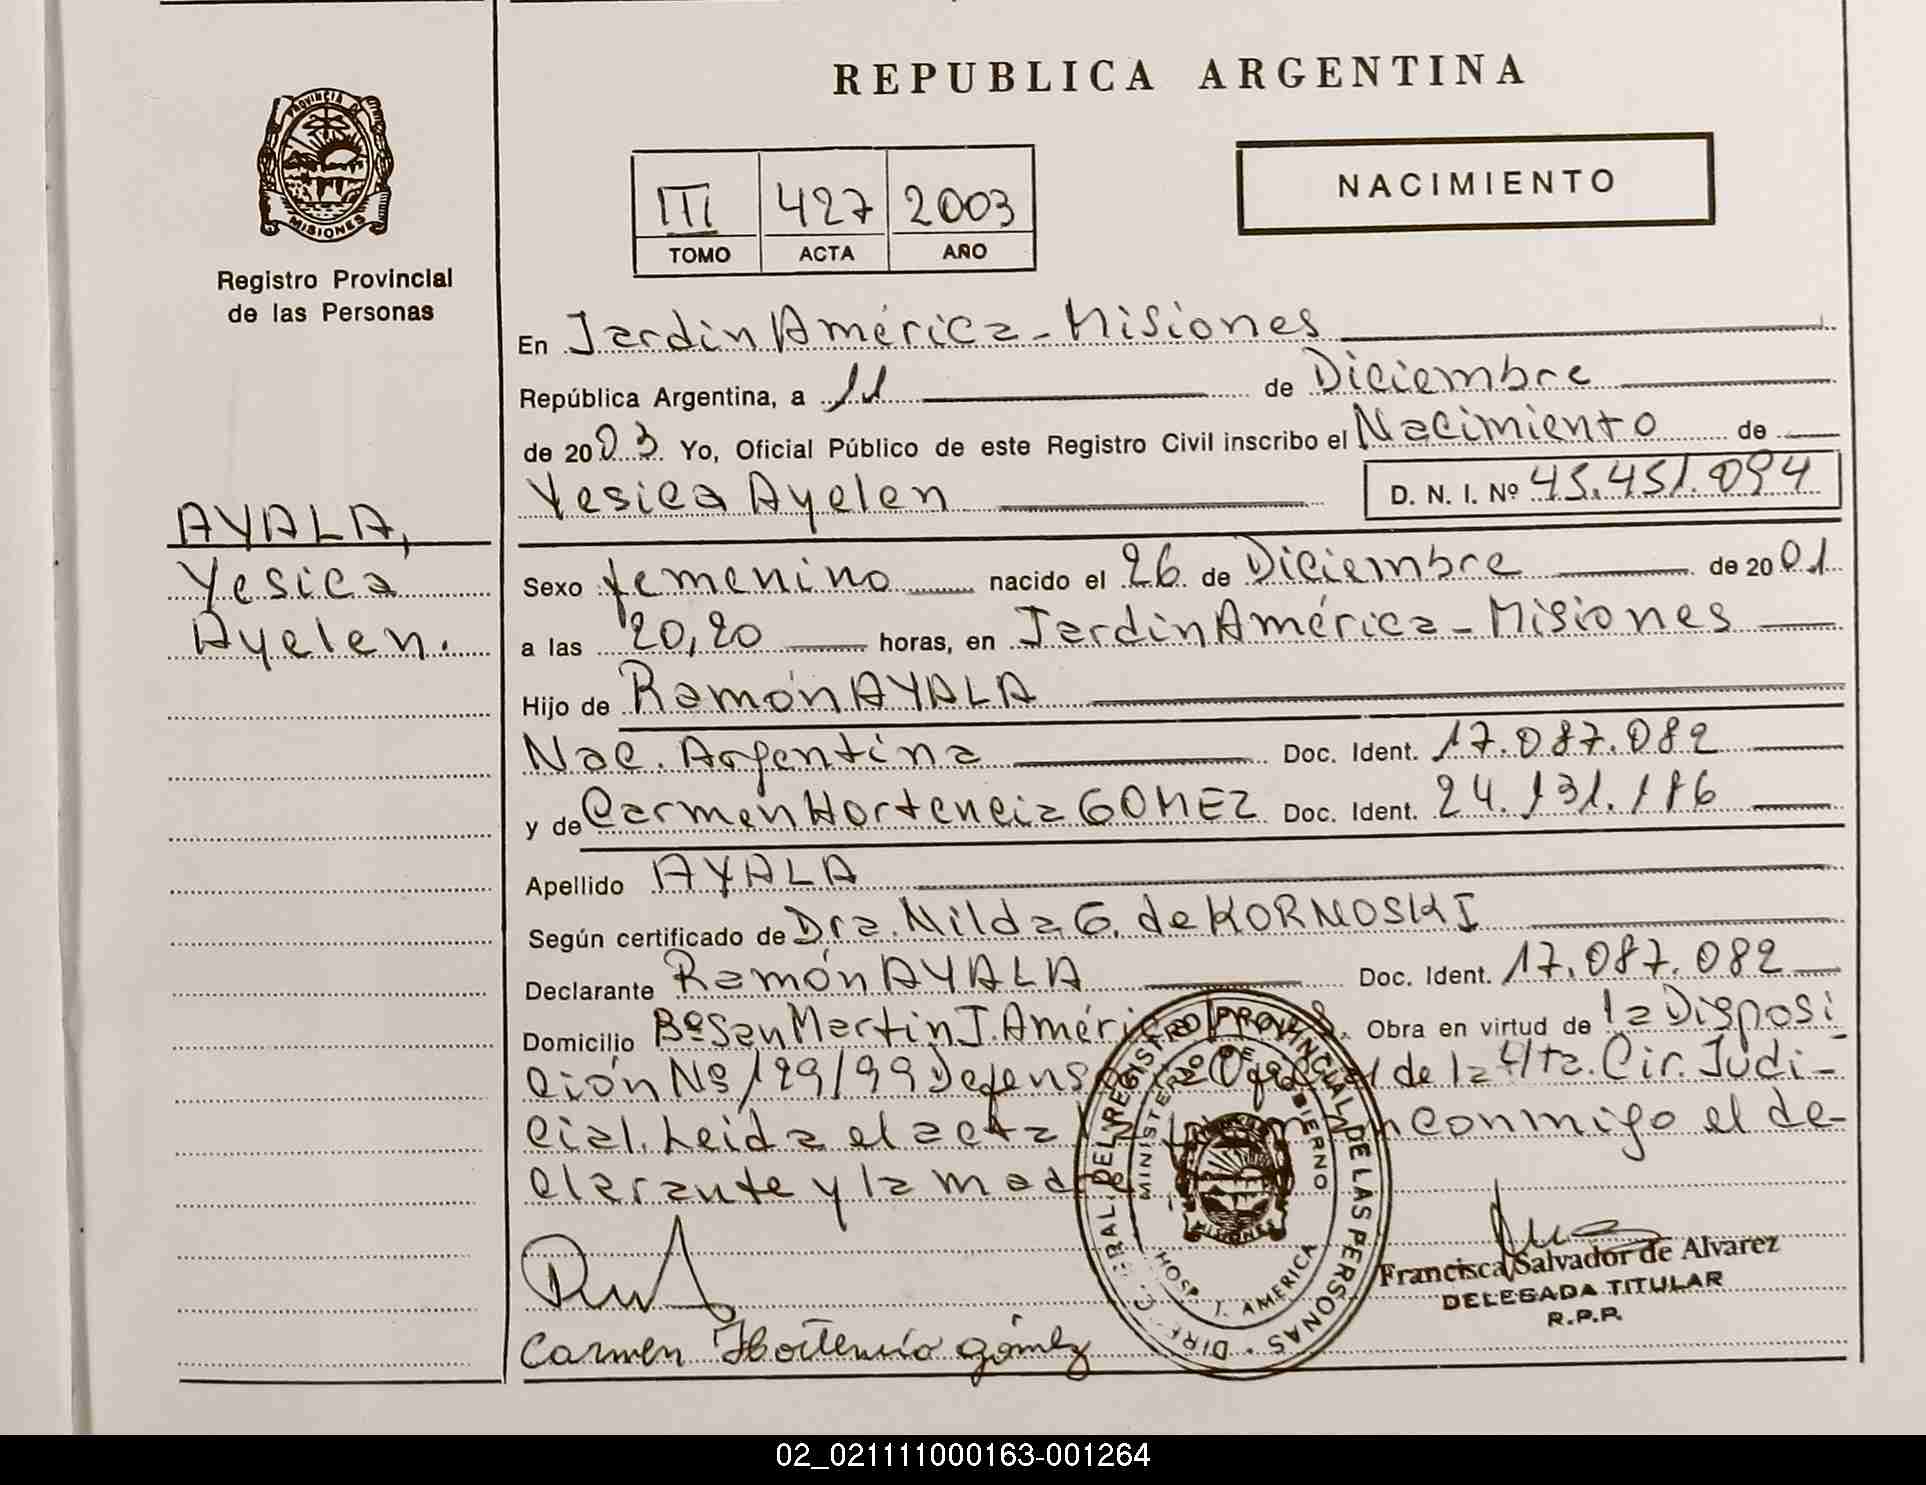 REPUBLICA ARGENTINA
PROVINCIA DE
MISIONES
Registro Provincial
de las Personas
III 427 2003
TOMO ACTA AÑO
NACIMIENTO
En Jardin América - Misiones
República Argentina, a 11 de Diciembre
de 2003 Yo, Oficial Público de este Registro Civil inscribo el Nacimiento de
Yesica Ayelen D. N. I. Nº 45.451.094
AYALA,
Yesica
Ayelen.
Sexo femenino nacido el 26 de Diciembre de 2001
a las 20,20 horas, en Jardin América - Misiones
Hijo de Ramón AYALA
Nac. Argentina Doc. Ident. 17.087.082
y de Carmen Hortencia GOMEZ Doc. Ident. 24.131.186
Apellido AYALA
Según certificado de Dra. Nilda G. de KORNOSKI
Declarante Ramón AYALA Doc. Ident. 17.087.082
Domicilio Bº San Martin J. América Obra en virtud de la Disposi
ción Nº 129/99 de la 4ta. Cir. Judi-
cial. Leida el acta conmigo el de-
clarante y la madre
DEL REGISTRO PROVINCIAL DE LAS PERSONAS
MINISTERIO DE GOBIERNO
MISIONES
HOSP. J. AMERICA
Francisca Salvador de Alvarez
DELEGADA TITULAR
R.P.P.
Carmen Hortencia gómez
02_021111000163-001264